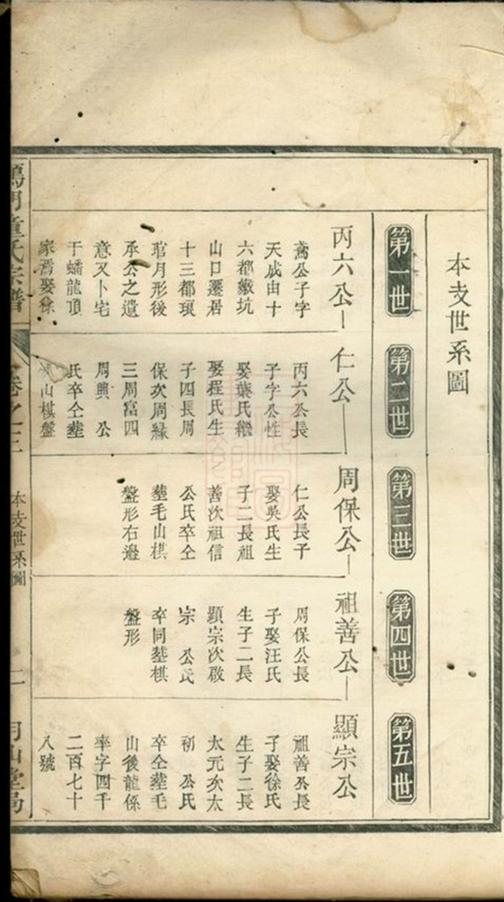 本支世系圖
第一世
第二世
第三世
第四世
第五世
丙六公
仁公
周保公
祖善公
顯宗公
鳶公子字
天成由十
六都
山口遷居
十三都
月形後
承公之遺
意又卜宅
于蟠龍頂
家焉娶徐
丙六公長
子字公性
娶葉氏繼
娶程氏生
子四長周
保次周緣
三周富四
周興 公
氏卒仝塟
山棋盤
仁公長子
娶吳氏生
子二長祖
善次祖信
公氏卒仝
塟毛山棋
盤形右邊
周保公長
子娶汪氏
生子二長
顯宗次啟
宗 公氏
卒同塟棋
盤形
祖善公長
子娶徐氏
生子二長
太元次太
初 公氏
卒仝塟毛
山後龍係
率字四千
二百七十
八號
門童氏宗譜
卷之三
本支世系圖